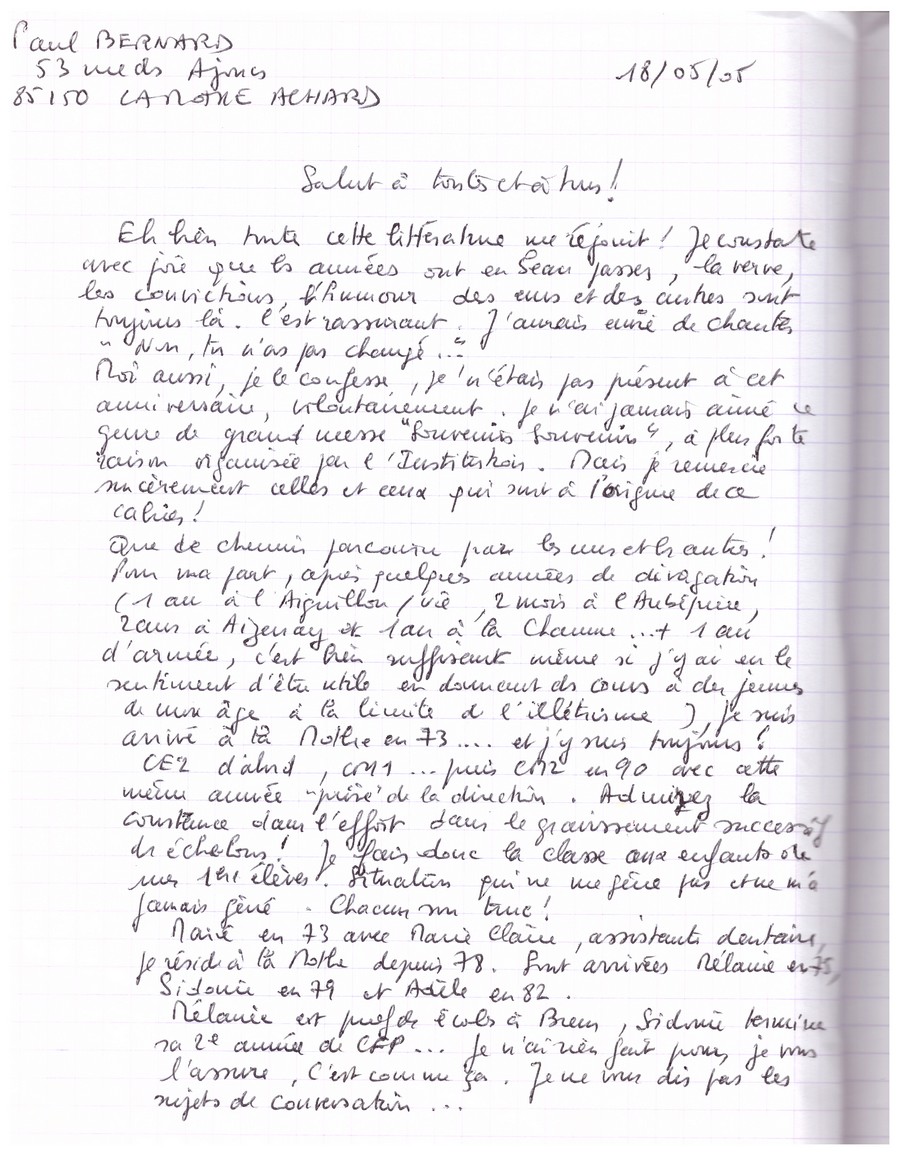 Paul BERNARD
53 rue des Ajoncs
18/05/05
85150 LA MOTHE ACHARD
Salut à toutes et à tous !
Eh bien toute cette littérature me réjouit ! Je constate
avec joie que les années ont eu beau passer, la verve,
les convictions, l'humour des uns et des autres sont
toujours là. C'est rassurant. J'aurais envie de chanter
"Non, tu n'as pas changé..."
Moi aussi, je le confesse, je n'étais pas présent à cet
anniversaire, volontairement. Je n'ai jamais aimé ce
genre de grand messe "Souvenirs Souvenirs", à plus forte
raison organisée par l'Institution. Mais je remercie
sincèrement celles et ceux qui sont à l'origine de ce
cahier !
Que de chemin parcouru par les uns et les autres !
Pour ma part, après quelques années de divagation
(1 an à l'Aiguillon/vie, 2 mois à l'Aubépine,
2 ans à Aizenay et 1 an à la Chaume ...+ 1 an
d'armée, c'est bien suffisant même si j'y ai eu le
sentiment d'être utile en donnant des cours à des jeunes
de mon âge à la limite de l'illétrisme), je suis
arrivé à la Mothe en 73.... et j'y suis toujours !
CE2 d'abord, CM1 ... puis CM2 en 90 avec cette
même année "prise" de la direction. Admirez la
constance dans l'effort dans le gravissement successif
des échelons ! Je fais donc la classe aux enfants de
mes 1ers élèves. Situation qui ne me gêne pas et ne m'a
jamais gêné. Chacun son truc !
Marié en 73 avec Marie Claire, assistante dentaire,
je réside à la Mothe depuis 78. Sont arrivées Mélanie en 75,
Sidonie en 79 et Adèle en 82.
Mélanie est prof de écoles à Brem, Sidonie termine
sa 2e année de CFP ... Je n'ai rien fait pour, je vous
l'assure, c'est comme ça. Je ne vous dis pas les
sujets de conversation ...